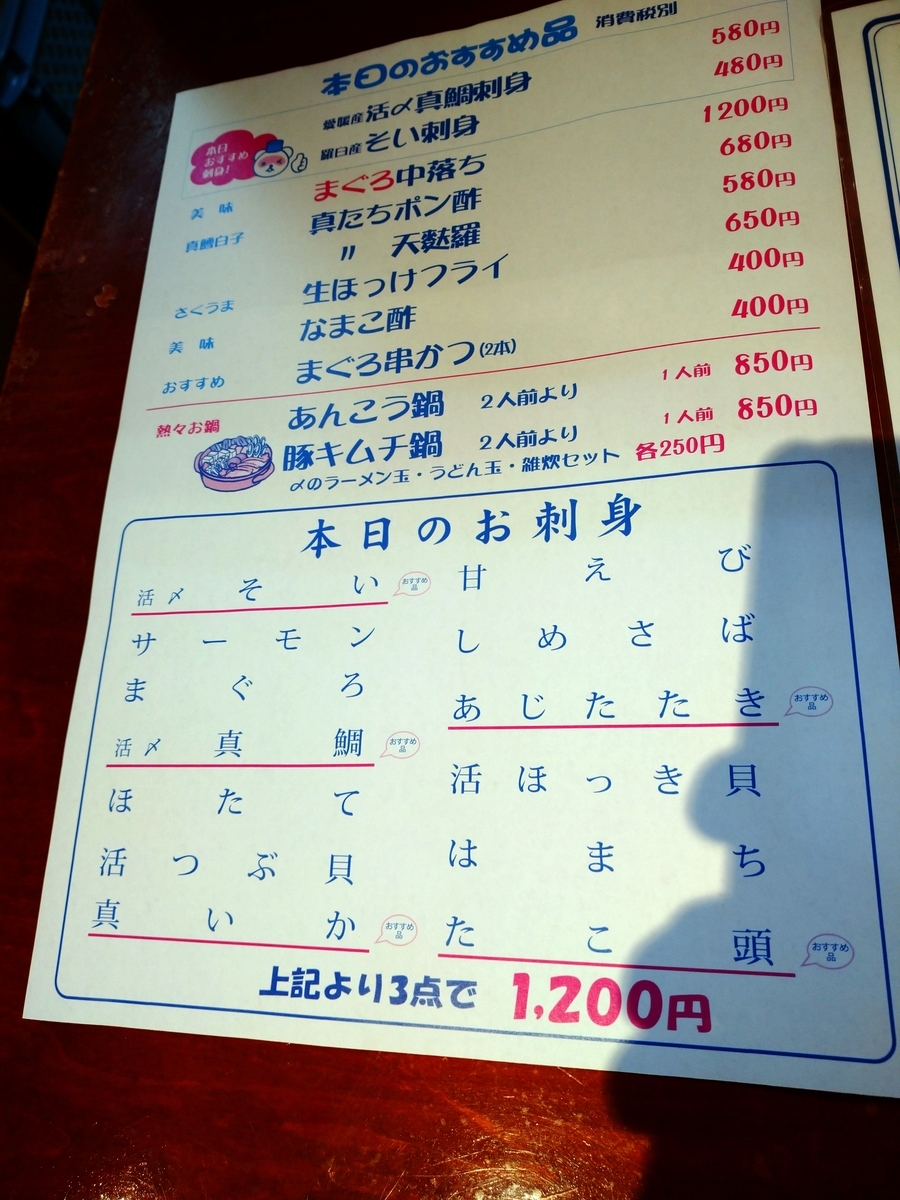 本日のおすすめ品 消費税別
愛媛産活〆真鯛刺身 580円
羅臼産そい刺身 480円
本日
おすすめ
刺身!
美味 まぐろ中落ち 1200円
真鱈白子 真たちポン酢 680円
〃 天麩羅 580円
さくうま 生ほっけフライ 650円
美味 なまこ酢 400円
おすすめ まぐろ串かつ(2本) 400円
熱々お鍋 あんこう鍋 2人前より 1人前 850円
豚キムチ鍋 2人前より 1人前 850円
〆のラーメン玉・うどん玉・雑炊セット 各250円
本日のお刺身
活〆そい おすすめ品
サーモン
まぐろ
活〆真鯛 おすすめ品
ほたて
活つぶ貝
真いか おすすめ品
甘えび
しめさば
あじたたき おすすめ品
活ほっき貝
はまち
たこ頭 おすすめ品
上記より3点で 1,200円